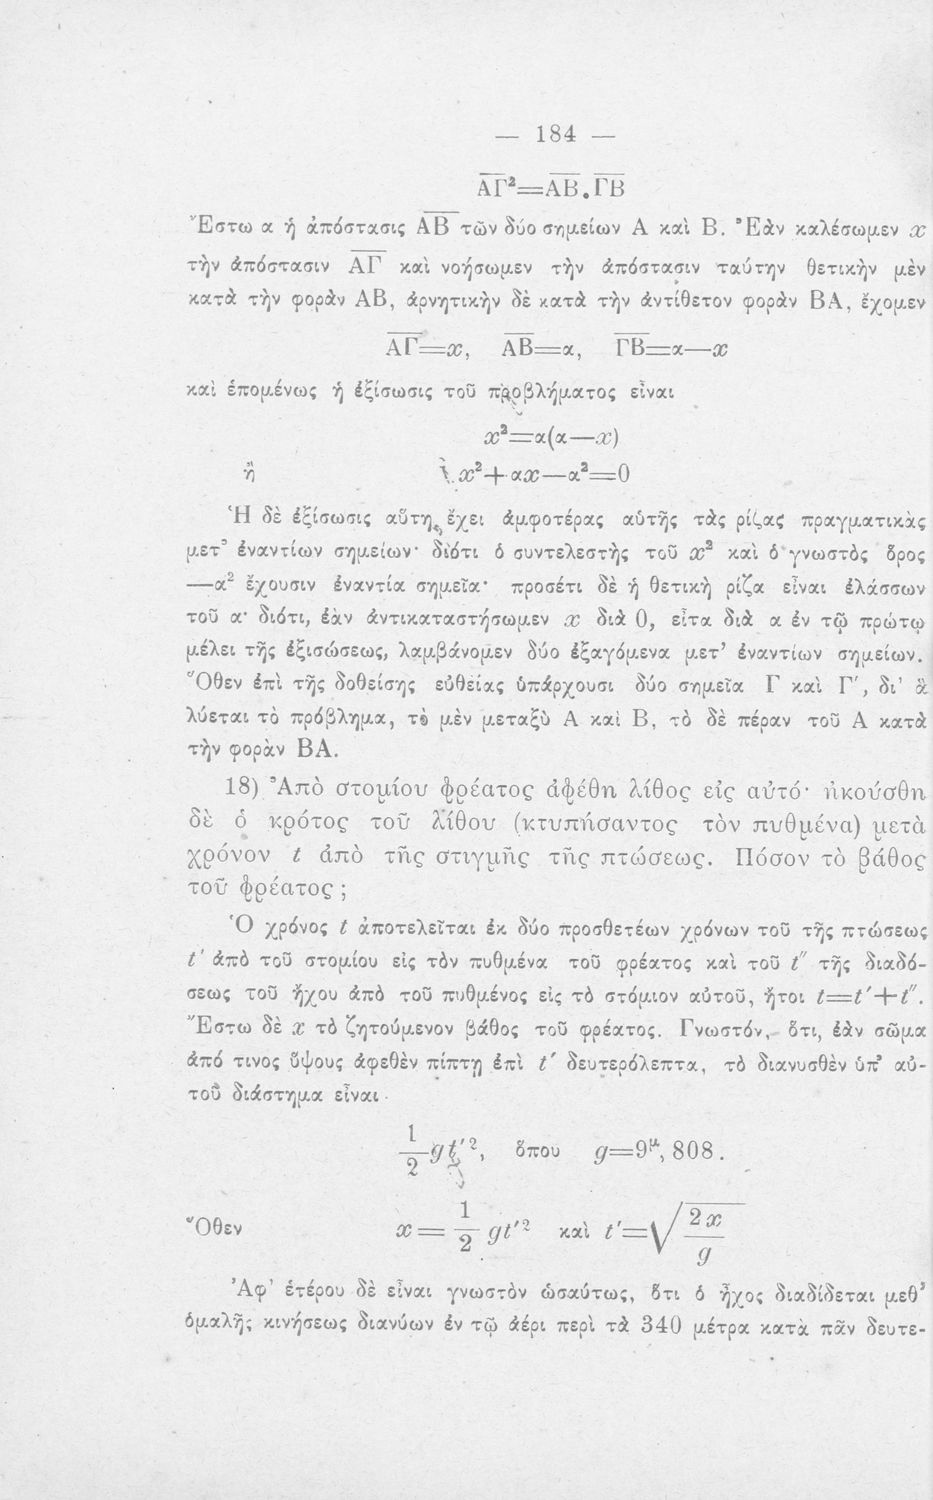 — 184 —
ΑΓ²=ΑΒ.ΓΒ
Ἔστω α ἡ ἀπόστασις ΑΒ τῶν δύο σημείων Α καὶ Β. Ἐὰν καλέσωμεν x
τὴν ἀπόστασιν ΑΓ καὶ νοήσωμεν τὴν ἀπόστασιν ταύτην θετικὴν μὲν
κατὰ τὴν φορὰν ΑΒ, ἀρνητικὴν δὲ κατὰ τὴν ἀντίθετον φορὰν ΒΑ, ἔχομεν
ΑΓ=x, ΑΒ=α, ΓΒ=α—x
καὶ ἑπομένως ἡ ἐξίσωσις τοῦ προβλήματος εἶναι
x²=α(α—x)
ἢ x²+αx—α²=0
Ἡ δὲ ἐξίσωσις αὕτη ἔχει ἀμφοτέρας αὑτῆς τὰς ρίζας πραγματικὰς
μετ' ἐναντίων σημείων· διότι ὁ συντελεστὴς τοῦ x² καὶ ὁ γνωστὸς ὅρος
—α² ἔχουσιν ἐναντία σημεῖα· προσέτι δὲ ἡ θετικὴ ρίζα εἶναι ἐλάσσων
τοῦ α· διότι, ἐὰν ἀντικαταστήσωμεν x διὰ 0, εἶτα διὰ α ἐν τῷ πρώτῳ
μέλει τῆς ἐξισώσεως, λαμβάνομεν δύο ἐξαγόμενα μετ' ἐναντίων σημείων.
Ὅθεν ἐπὶ τῆς δοθείσης εὐθείας ὑπάρχουσι δύο σημεῖα Γ καὶ Γ', δι' ἃ
λύεται τὸ πρόβλημα, τὸ μὲν μεταξὺ Α καὶ Β, τὸ δὲ πέραν τοῦ Α κατὰ
τὴν φορὰν ΒΑ.
18) Ἀπὸ στομίου φρέατος ἀφέθη λίθος εἰς αὐτό· ἠκούσθη
δὲ ὁ κρότος τοῦ λίθου (κτυπήσαντος τὸν πυθμένα) μετὰ
χρόνον t ἀπὸ τῆς στιγμῆς τῆς πτώσεως. Πόσον τὸ βάθος
τοῦ φρέατος ;
Ὁ χρόνος t ἀποτελεῖται ἐκ δύο προσθετέων χρόνων τοῦ τῆς πτώσεως
t' ἀπὸ τοῦ στομίου εἰς τὸν πυθμένα τοῦ φρέατος καὶ τοῦ t'' τῆς διαδό-
σεως τοῦ ἤχου ἀπὸ τοῦ πυθμένος εἰς τὸ στόμιον αὐτοῦ, ἤτοι t=t'+t''.
Ἔστω δὲ x τὸ ζητούμενον βάθος τοῦ φρέατος. Γνωστόν, ὅτι, ἐὰν σῶμα
ἀπό τινος ὕψους ἀφεθὲν πίπτῃ ἐπὶ t' δευτερόλεπτα, τὸ διανυσθὲν ὑπ' αὐ-
τοῦ διάστημα εἶναι
1/2 gt'², ὅπου g=9μ,808.
Ὅθεν x= 1/2 gt'² καὶ t'=√2x/g
Ἀφ' ἑτέρου δὲ εἶναι γνωστὸν ὡσαύτως, ὅτι ὁ ἦχος διαδίδεται μεθ'
ὁμαλῆς κινήσεως διανύων ἐν τῷ ἀέρι περὶ τὰ 340 μέτρα κατὰ πᾶν δευτε-